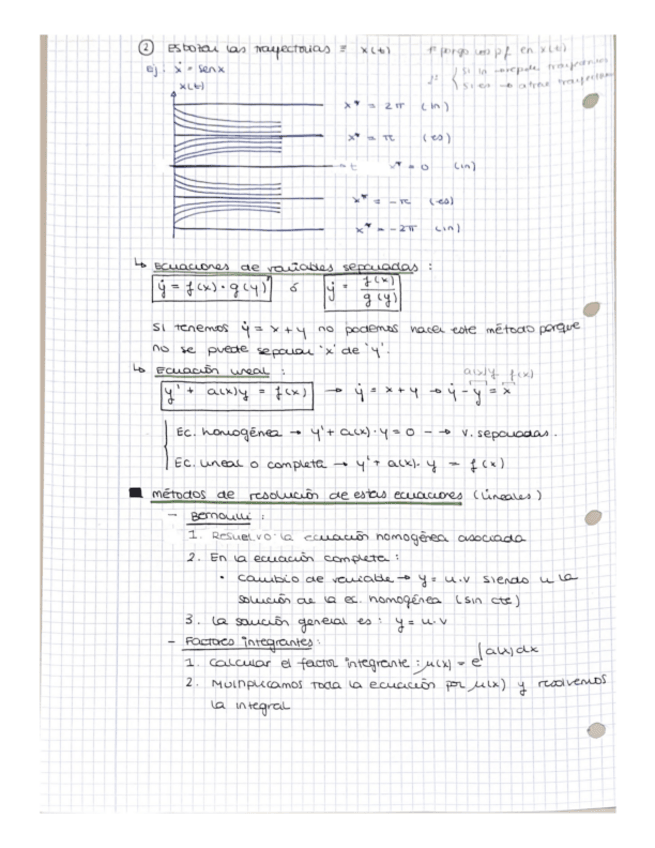 ② Esbozar las trayectorias ≡ x(t) 1º pongo los pf en x(t)
ej: ẋ = senx 2º { si in → repele trayectorias
{ si es → atrae trayectorias
x(t)
x* = 2π (in)
x* = π (es)
t x* = 0 (in)
x* = -π (es)
x* = -2π (in)
↳ Ecuaciones de variables separadas :
ẏ = f(x) · g(y) ó ẏ = f(x)/g(y)
Si tenemos ẏ = x + y no podemos hacer este método porque
no se puede separar 'x' de 'y'.
↳ Ecuación lineal : a(x)y f(x)
y' + a(x)y = f(x) → ẏ = x + y → ẏ - y = x
Ec. homogénea → y' + a(x)·y = 0 - → v. separadas.
Ec. lineal o completa → y' + a(x)·y = f(x)
■ métodos de resolución de estas ecuaciones (lineales)
- Bernoulli :
1. Resuelvo la ecuación homogénea asociada
2. En la ecuación completa :
• cambio de variable → y = u.v siendo u la
solución de la ec. homogénea (sin cte)
3. la solución general es : y = u.v
- Factores integrantes :
1. calcular el factor integrante : μ(x) = e^∫a(x)dx
2. Multiplicamos toda la ecuación por μ(x) y resolvemos
la integral